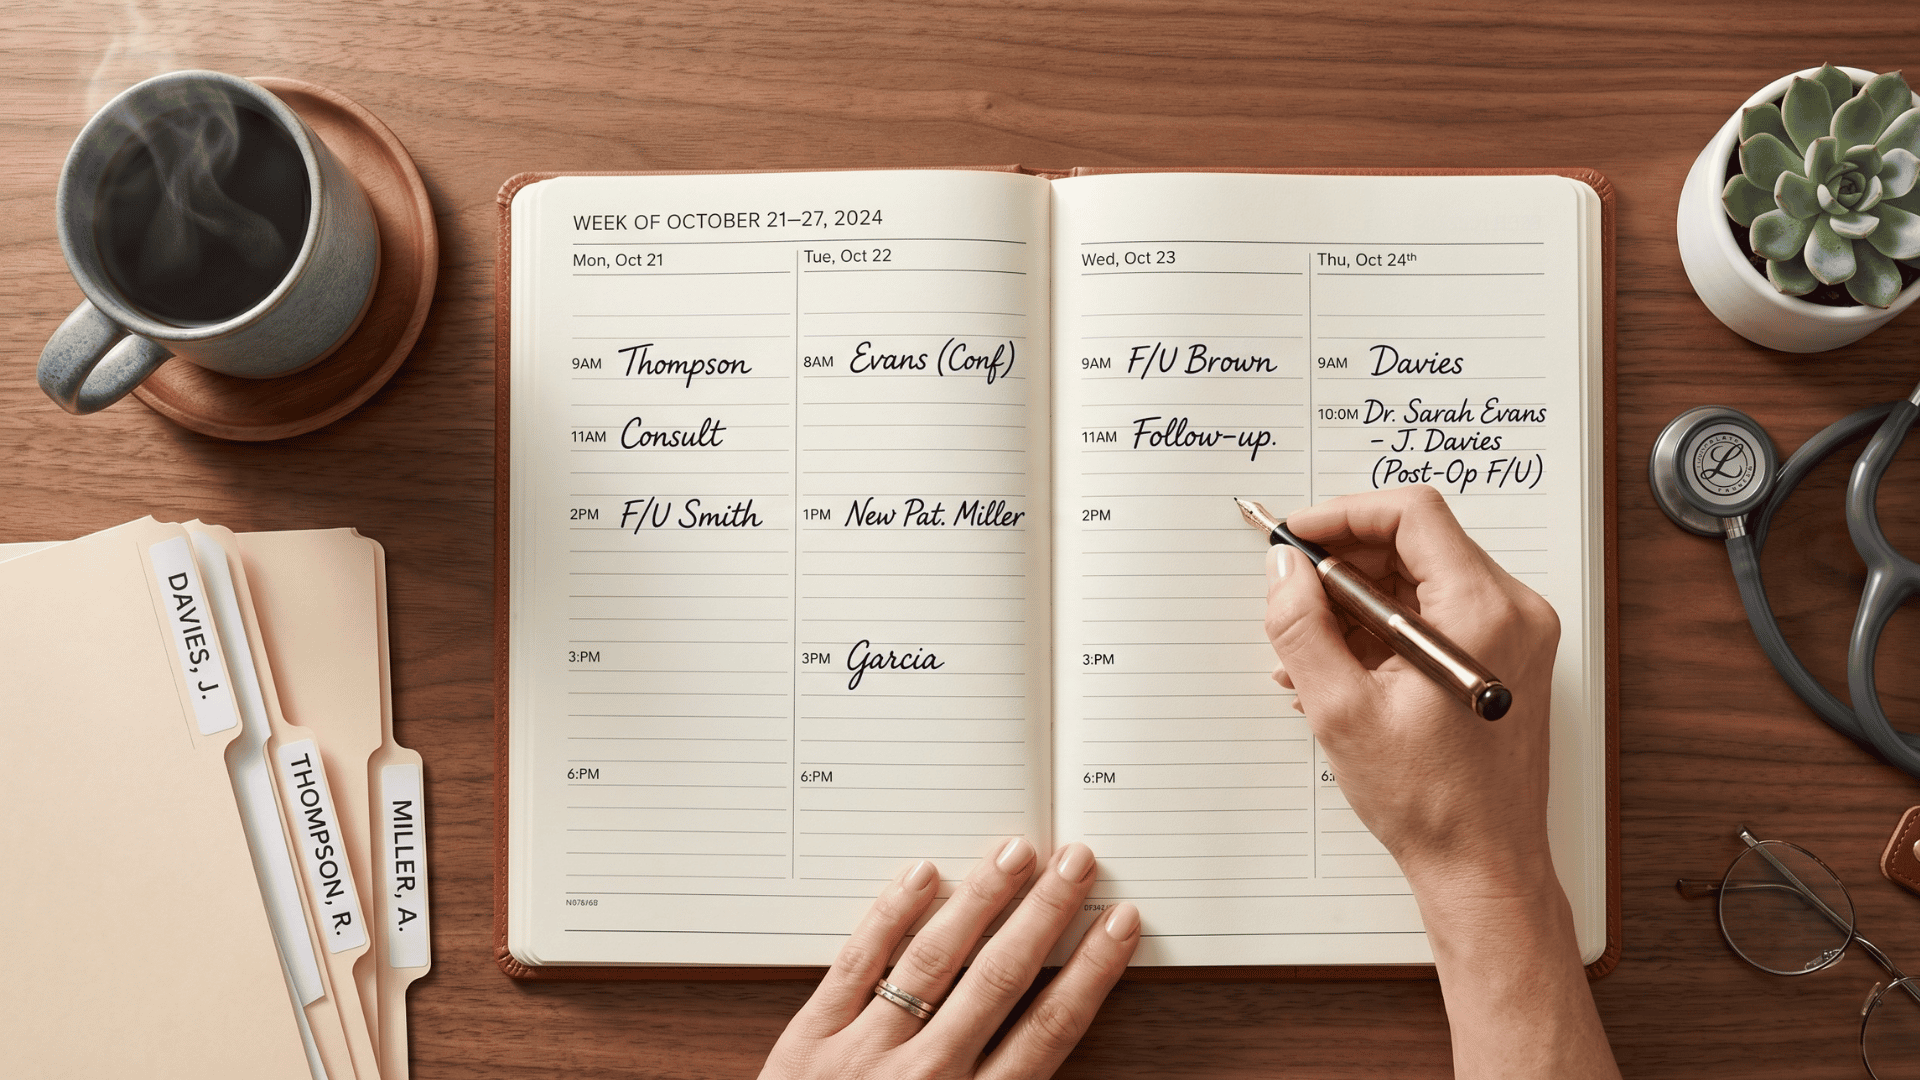 WEEK OF OCTOBER 21–27, 2024
Mon, Oct 21
9AM Thompson
11AM Consult
2PM F/U Smith
3:PM
6:PM
Tue, Oct 22
8AM Evans (Conf)
1PM New Pat. Miller
3PM Garcia
6:PM
Wed, Oct 23
9AM F/U Brown
11AM Follow-up.
2PM
3:PM
6:PM
Thu, Oct 24th
9AM Davies
10:0M Dr. Sarah Evans
– J. Davies
(Post-Op F/U)
DAVIES, J.
THOMPSON, R.
MILLER, A.